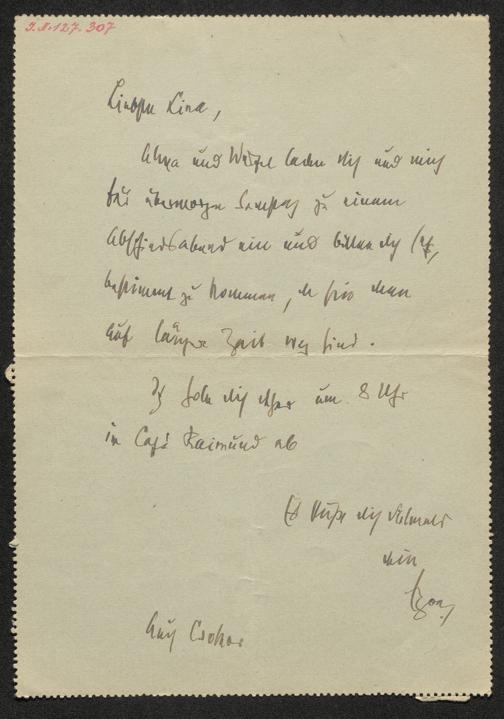 I.N. 127.307
Liebste Lina,
Alma und Werfel laden dich und mich
für übermorgen Samstag zu einem
Abschiedsabend ein und bitten dich sehr,
bestimmt zu kommen, da sie dann
auf längere Zeit weg sind.
Ich hole dich daher um 8 Uhr
in Café Raimund ab
Es küßt dich vielmals
dein
Auch Csokor